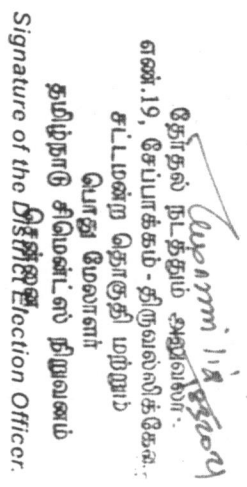 தேர்தல் நடத்தும் அலுவலர்
எண்.19, சேப்பாக்கம் - திருவல்லிக்கேணி
சட்டமன்ற தொகுதி மற்றும்
பொது மேலாளர்
தமிழ்நாடு சிமெண்ட்ஸ் நிறுவனம்
சென்னை
Signature of the District Election Officer.